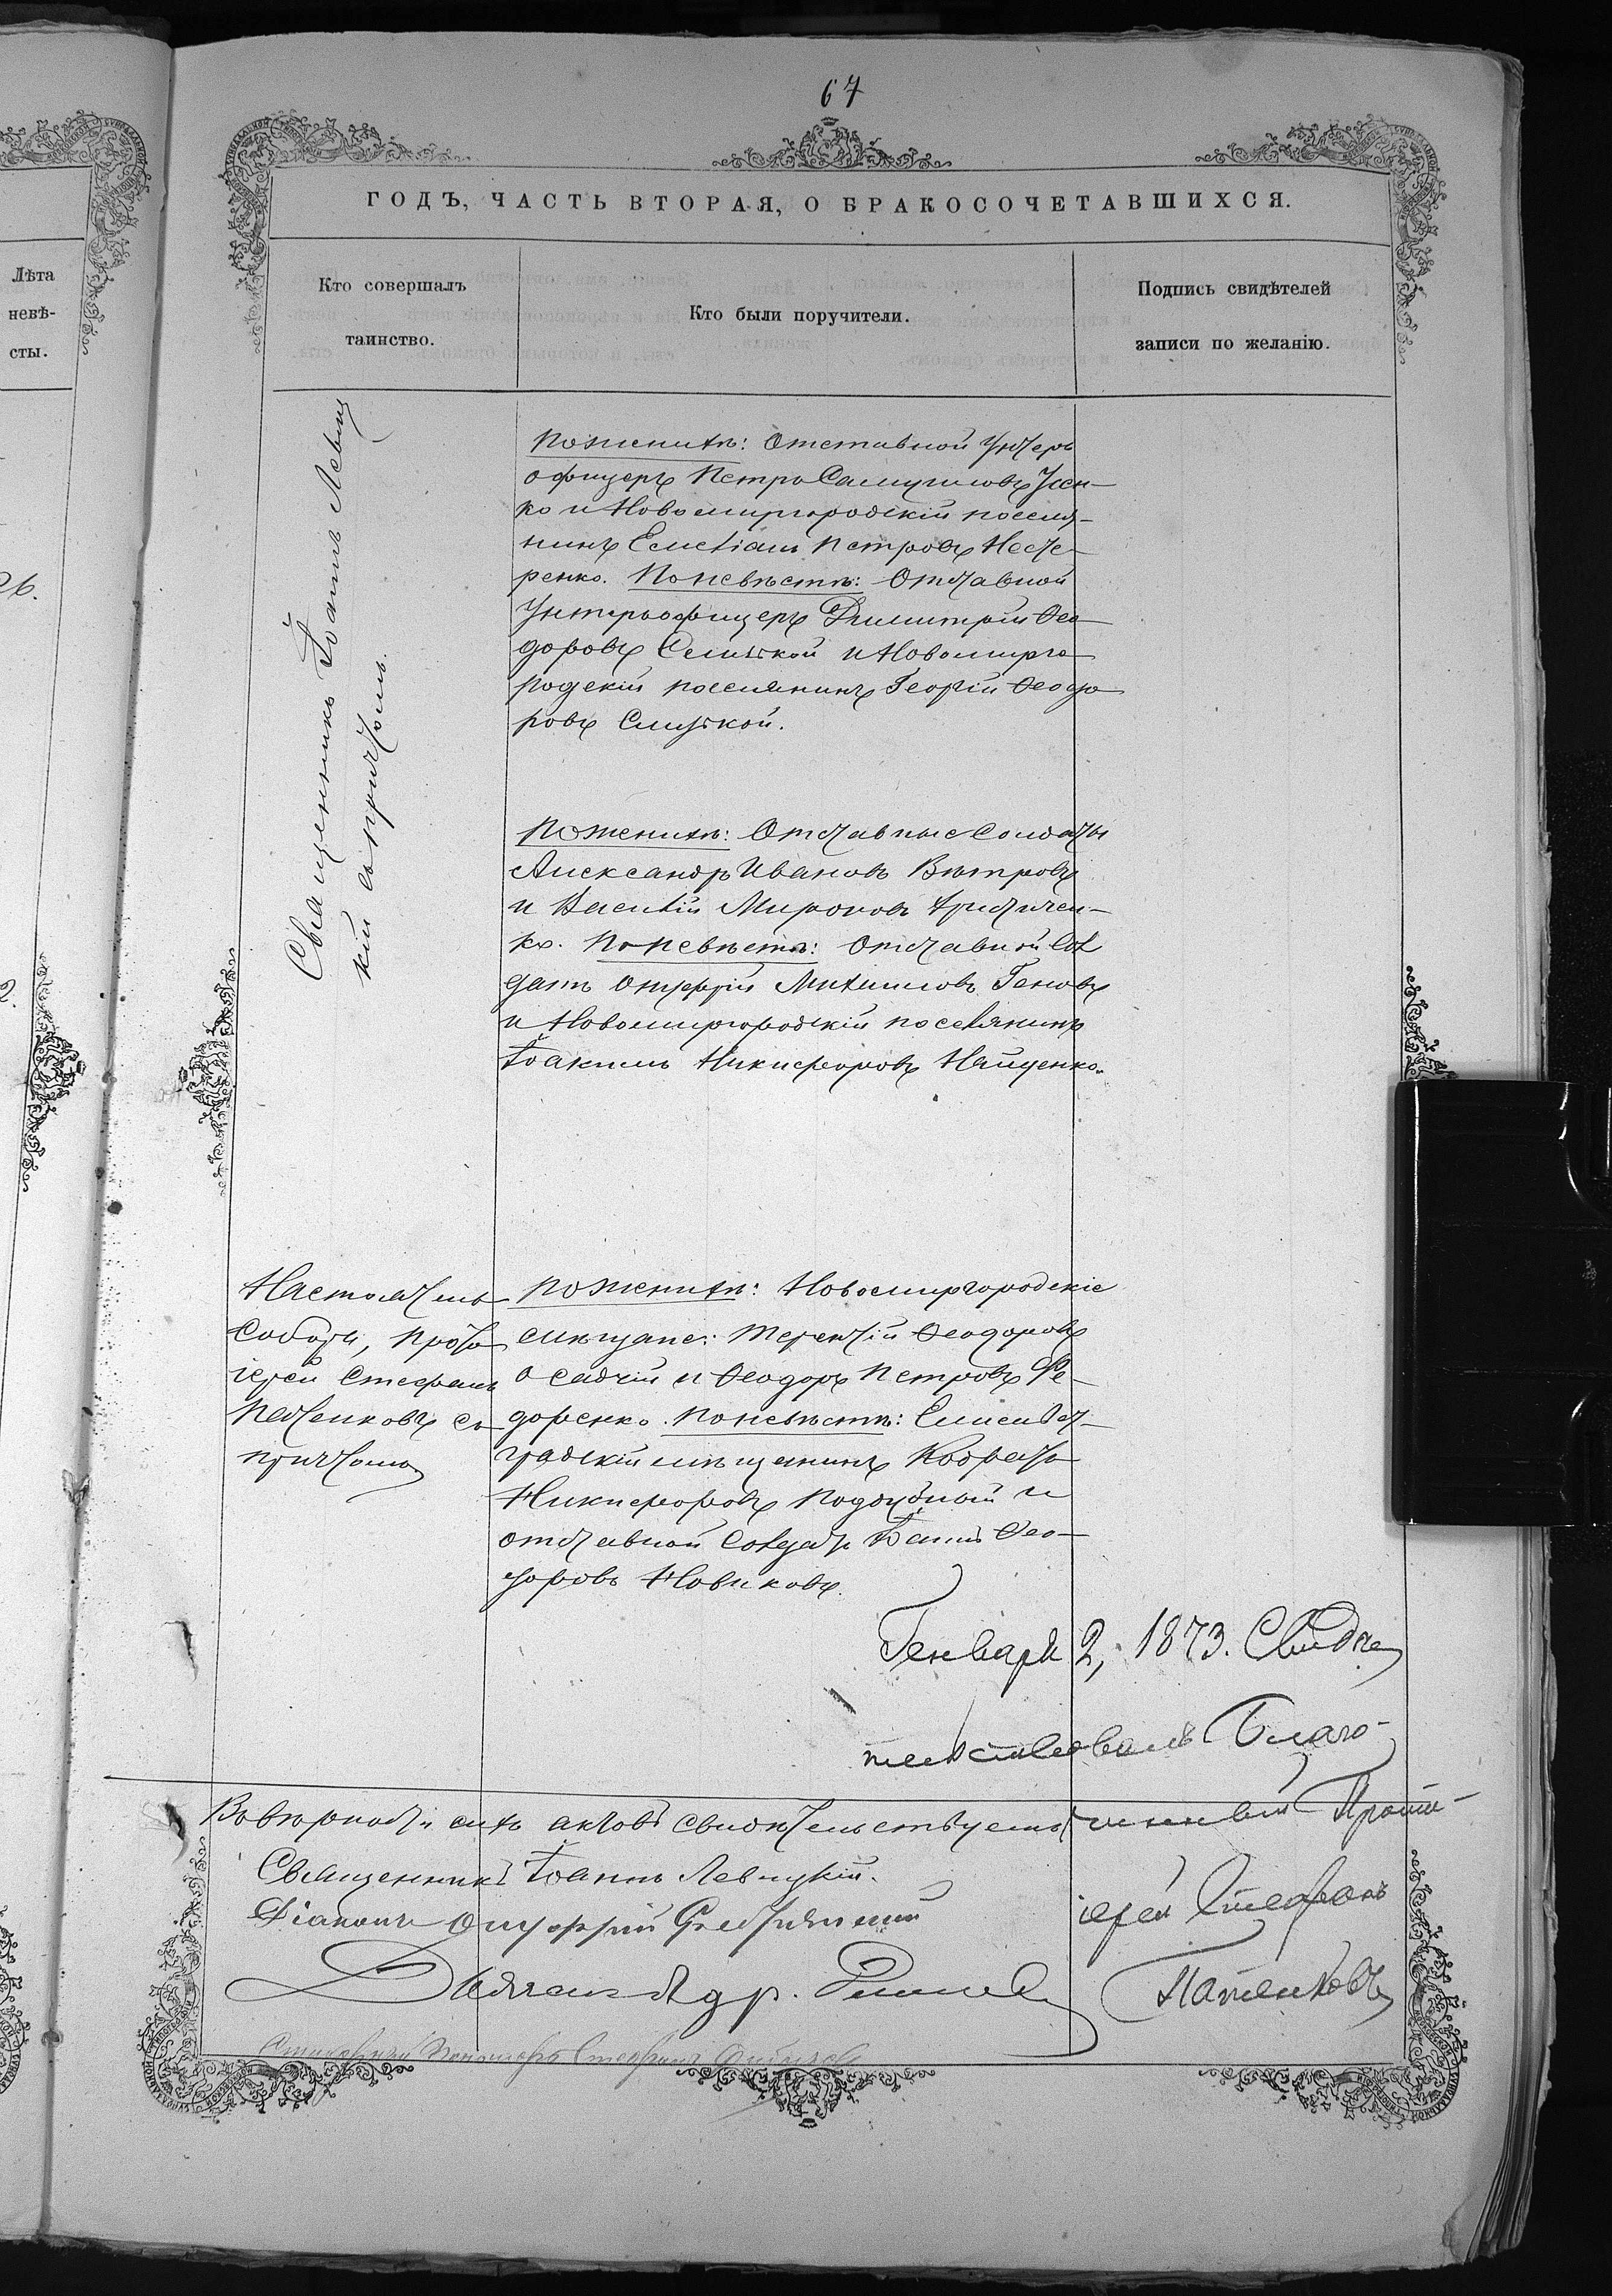 67
ГОДЪ, ЧАСТЬ ВТОРАЯ, О БРАКОСОЧЕТАВШИХСЯ.
Лѣта
невѣ-
сты.
Кто совершалъ
таинство.
Кто были поручители.
Подпись свидѣтелей
записи по желанію.
26.
Священникъ Іоаннъ Левиц
кій съ причтомъ.
По женихѣ: Отставной Унтеръ
офицеръ Петръ Самуиловъ Усен-
ко и Новомиргородскій поселя-
нинъ Емеліанъ Петровъ Несте-
ренко. По невѣстѣ: Отставной
Унтеръ офицеръ Димитрій Ѳео
доровъ и Новомирго
родскій поселянинъ Георгій Ѳеодо
ровъ
По женихѣ: Отставные Солдаты
Александръ Ивановъ Вѣтровъ
и Василій Мироновъ
ко. По невѣстѣ: Отставной Сол
датъ Онуфрій Михаиловъ
и Новомиргородскій поселянинъ
Іоакимъ Никифоровъ Нащенко.
Настоятель
Собора, Прото
іерей Стефанъ
съ
причтомъ
По женихѣ: Новомиргородскіе
мѣщане: Терентій Ѳеодоровъ
Осадчій и Ѳеодоръ Петровъ Ѳе-
доренко. По невѣстѣ: Елисавет-
градскій мѣщанинъ Кодратъ
Никифоровъ Поддубный и
отставной Солдатъ Іоаннъ Ѳео-
доровъ Новиковъ.
Генваря 2, 1873. Свидѣ
тельствовалъ Благо-
чинный Прото-
іерей Стефанъ
Въ вѣрности сихъ актовъ свидѣтельствуемъ
Священникъ Іоаннъ Левицкій.
Діаконъ Онуфрій
Дьячекъ Алдр.
Стефанъ